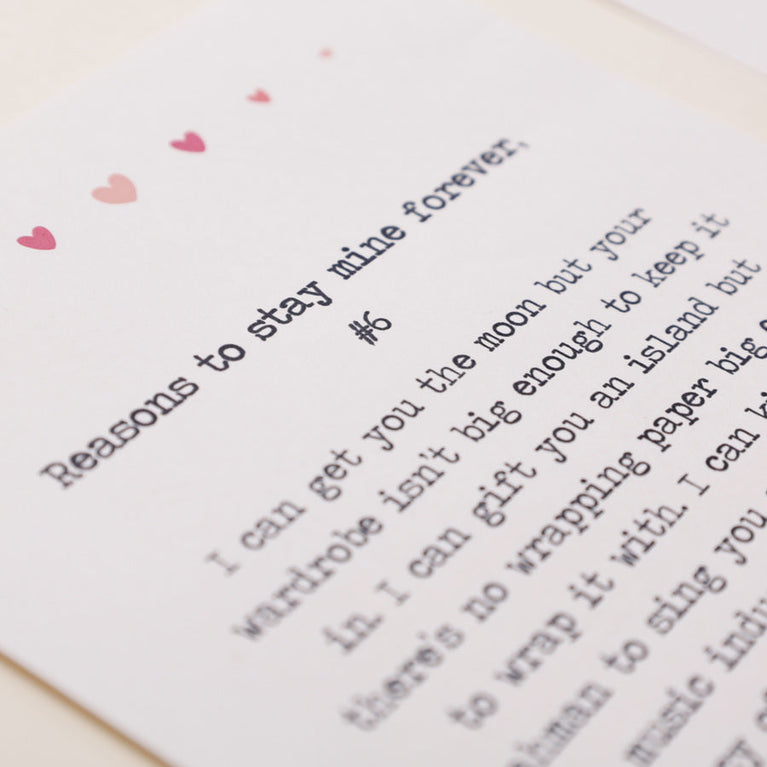 Reasons to stay mine forever,
#6
I can get you the moon but your
wardrobe isn't big enough to keep it
in. I can gift you an island but
there's no wrapping paper big
to wrap it with. I can
to sing you
music